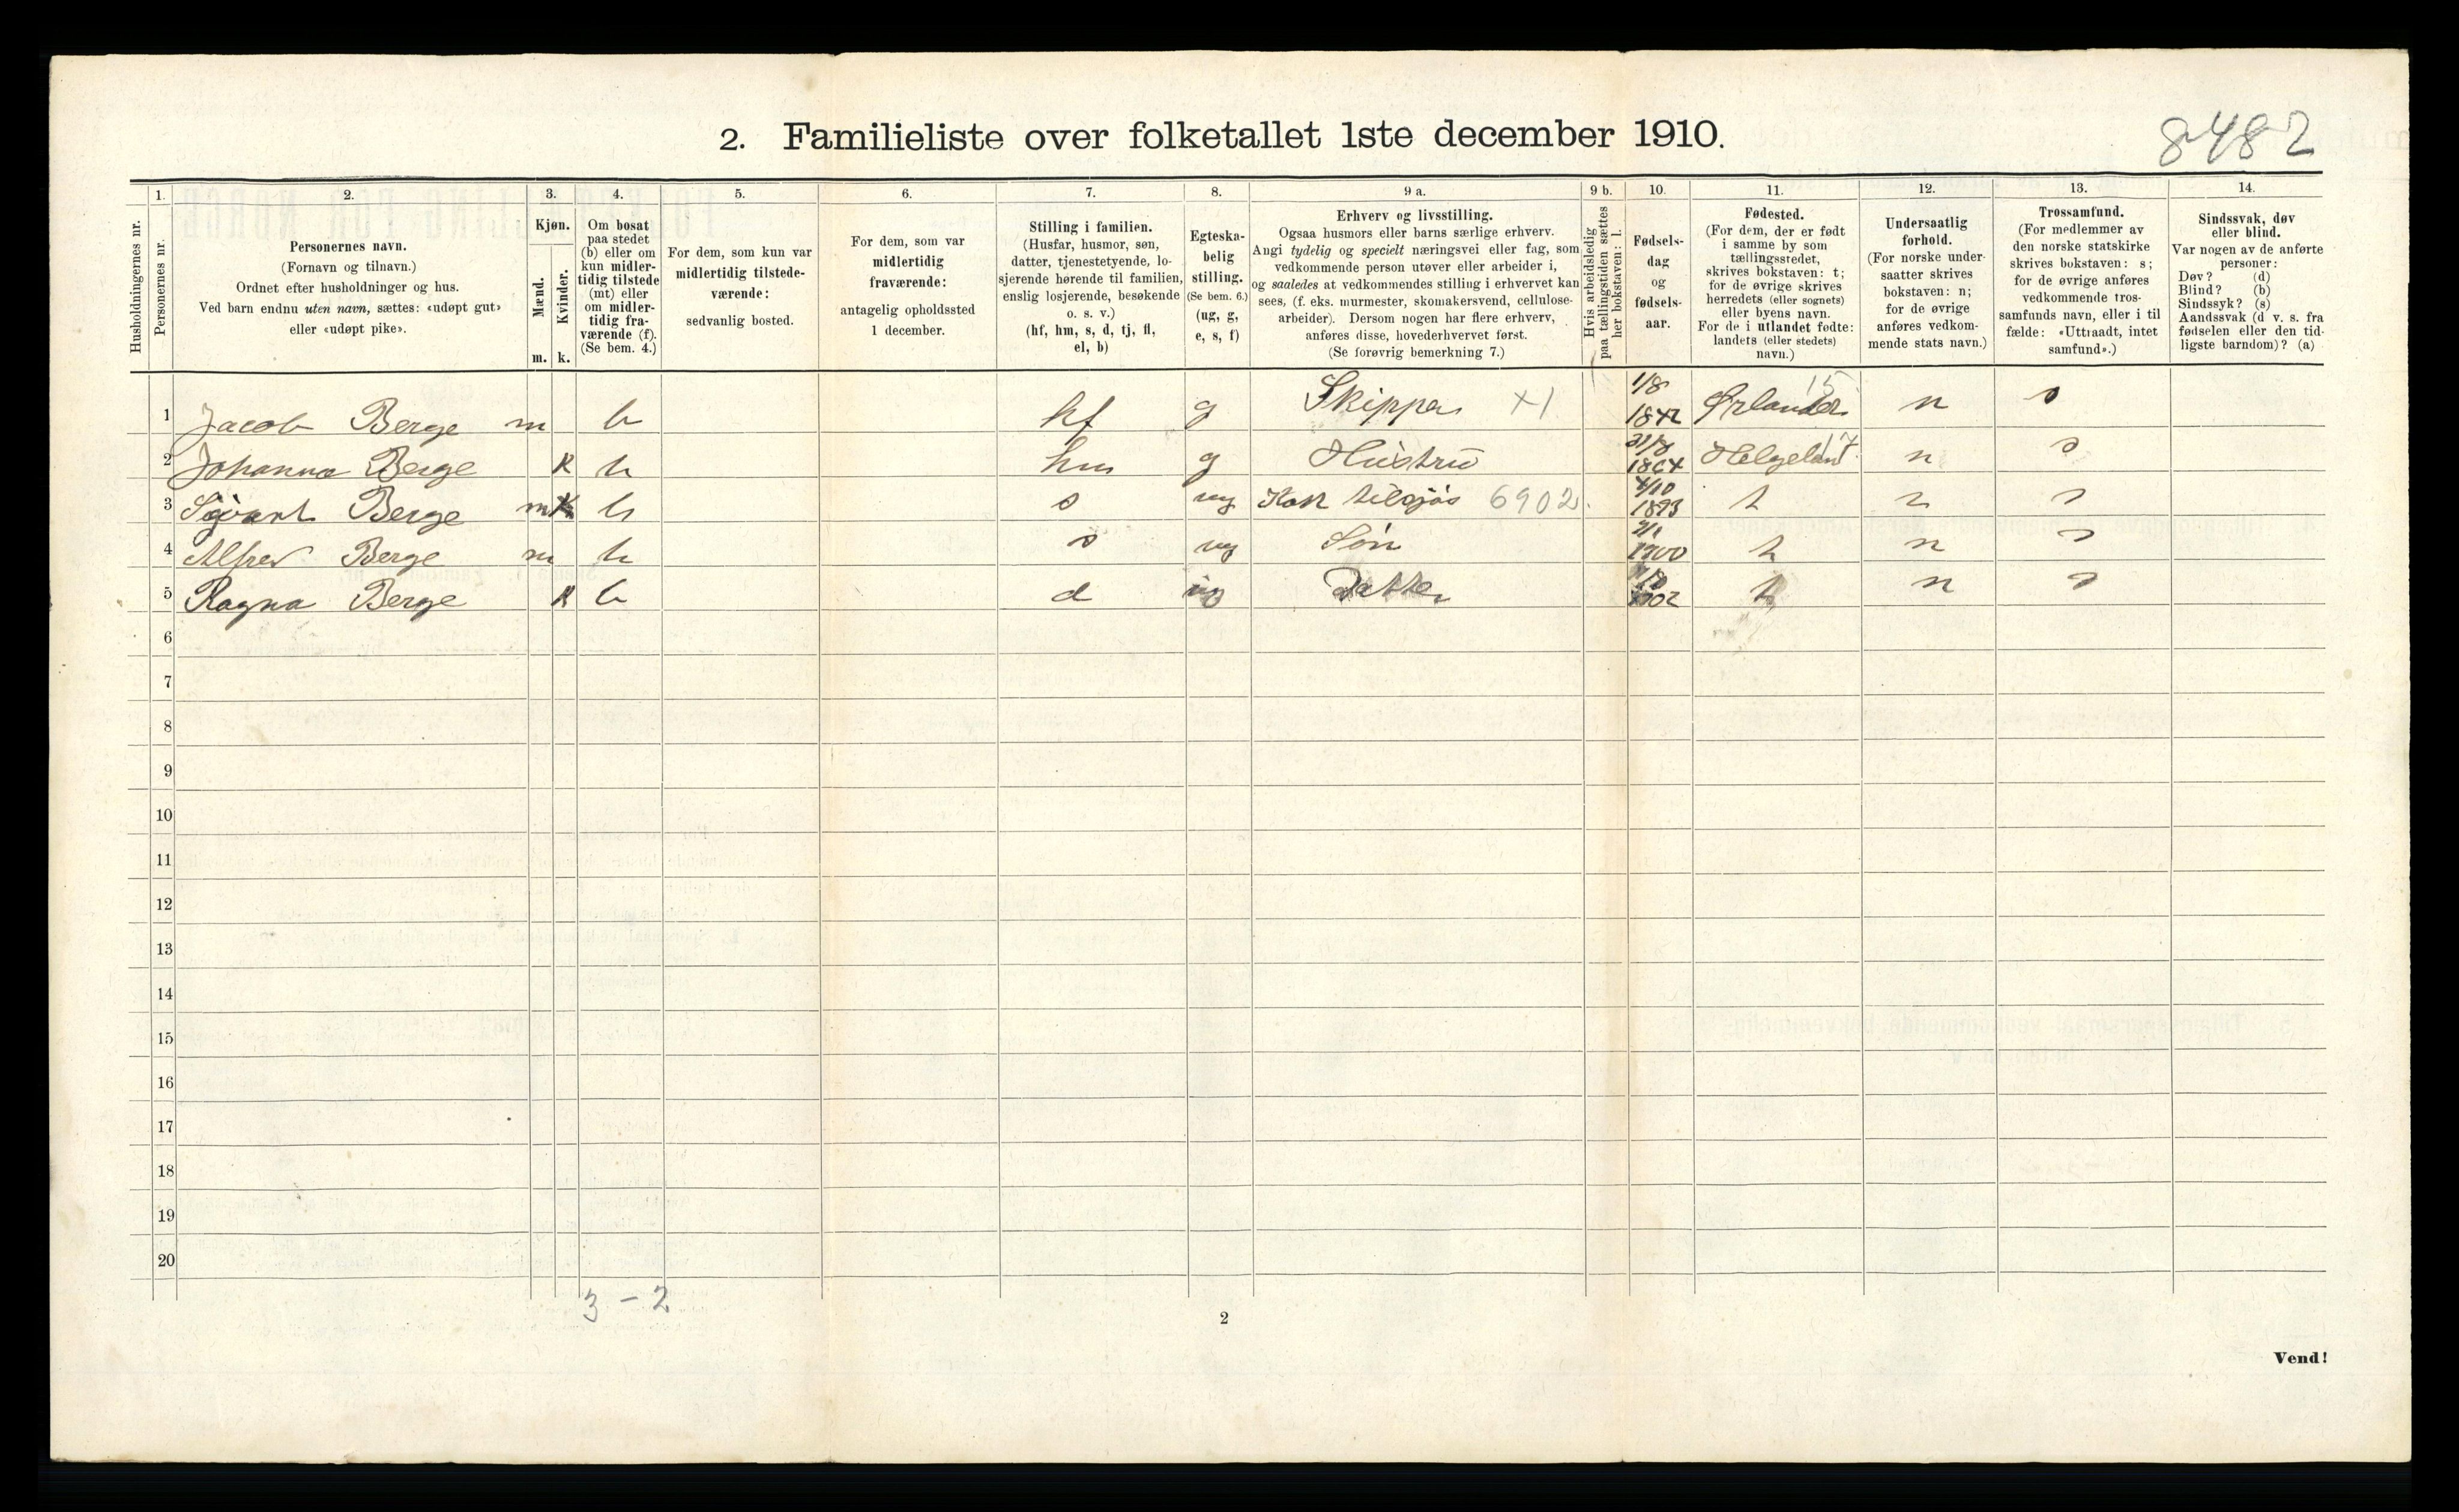 2. Familieliste over folketallet 1ste december 1910.
8482
Husholdningernes nr.
1. Personernes nr.
2. Personernes navn. (Fornavn og tilnavn.) Ordnet efter husholdninger og hus. Ved barn endnu uten navn, sættes: «udøpt gut» eller «udøpt pike».
3. Kjøn. Mænd. m. Kvinder. k.
4. Om bosat paa stedet (b) eller om kun midlertidig tilstede (mt) eller om midlertidig fraværende (f). (Se bem. 4.)
5. For dem, som kun var midlertidig tilstedeværende: sedvanlig bosted.
6. For dem, som var midlertidig fraværende: antagelig opholdssted 1 december.
7. Stilling i familien. (Husfar, husmor, søn, datter, tjenestetyende, losjerende hørende til familien, enslig losjerende, besøkende o. s. v.) (hf, hm, s, d, tj, fl, el, b)
8. Egteskabelig stilling. (Se bem. 6.) (ug, g, e, s, f)
9 a. Erhverv og livsstilling. Ogsaa husmors eller barns særlige erhverv. Angi tydelig og specielt næringsvei eller fag, som vedkommende person utøver eller arbeider i, og saaledes at vedkommendes stilling i erhvervet kan sees, (f. eks. murmester, skomakersvend, cellulosearbeider). Dersom nogen har flere erhverv, anføres disse, hovederhvervet først. (Se forøvrig bemerkning 7.)
9 b. Hvis arbeidsledig paa tællingstiden sættes her bokstaven: l.
10. Fødselsdag og fødselsaar.
11. Fødested. (For dem, der er født i samme by som tællingsstedet, skrives bokstaven: t; for de øvrige skrives herredets (eller sognets) eller byens navn. For de i utlandet fødte: landets (eller stedets) navn.)
12. Undersaatlig forhold. (For norske undersaatter skrives bokstaven: n; for de øvrige anføres vedkommende stats navn.)
13. Trossamfund. (For medlemmer av den norske statskirke skrives bokstaven: s; for de øvrige anføres vedkommende trossamfunds navn, eller i tilfælde: «Uttraadt, intet samfund».)
14. Sindssvak, døv eller blind. Var nogen av de anførte personer: Døv? (d) Blind? (b) Sindssyk? (s) Aandssvak (d v. s. fra fødselen eller den tidligste barndom)? (a)
1 Jacob Berge m b hf g Skipper X1 1/8 1842 Ørlandet 15 n s
2 Johanna Berge k b hm g Hustru 1864 Helgeland 17 n s
3 Berge m b s ug Kok tilsjøs 6902 4/10 1893 t n s
4 Alfred Berge m b s ug Søn 1900 t n s
5 Ragna Berge k b d ug Datter 1902 t n s
6
7
8
9
10
11
12
13
14
15
16
17
18
19
20
3 - 2
2
Vend!